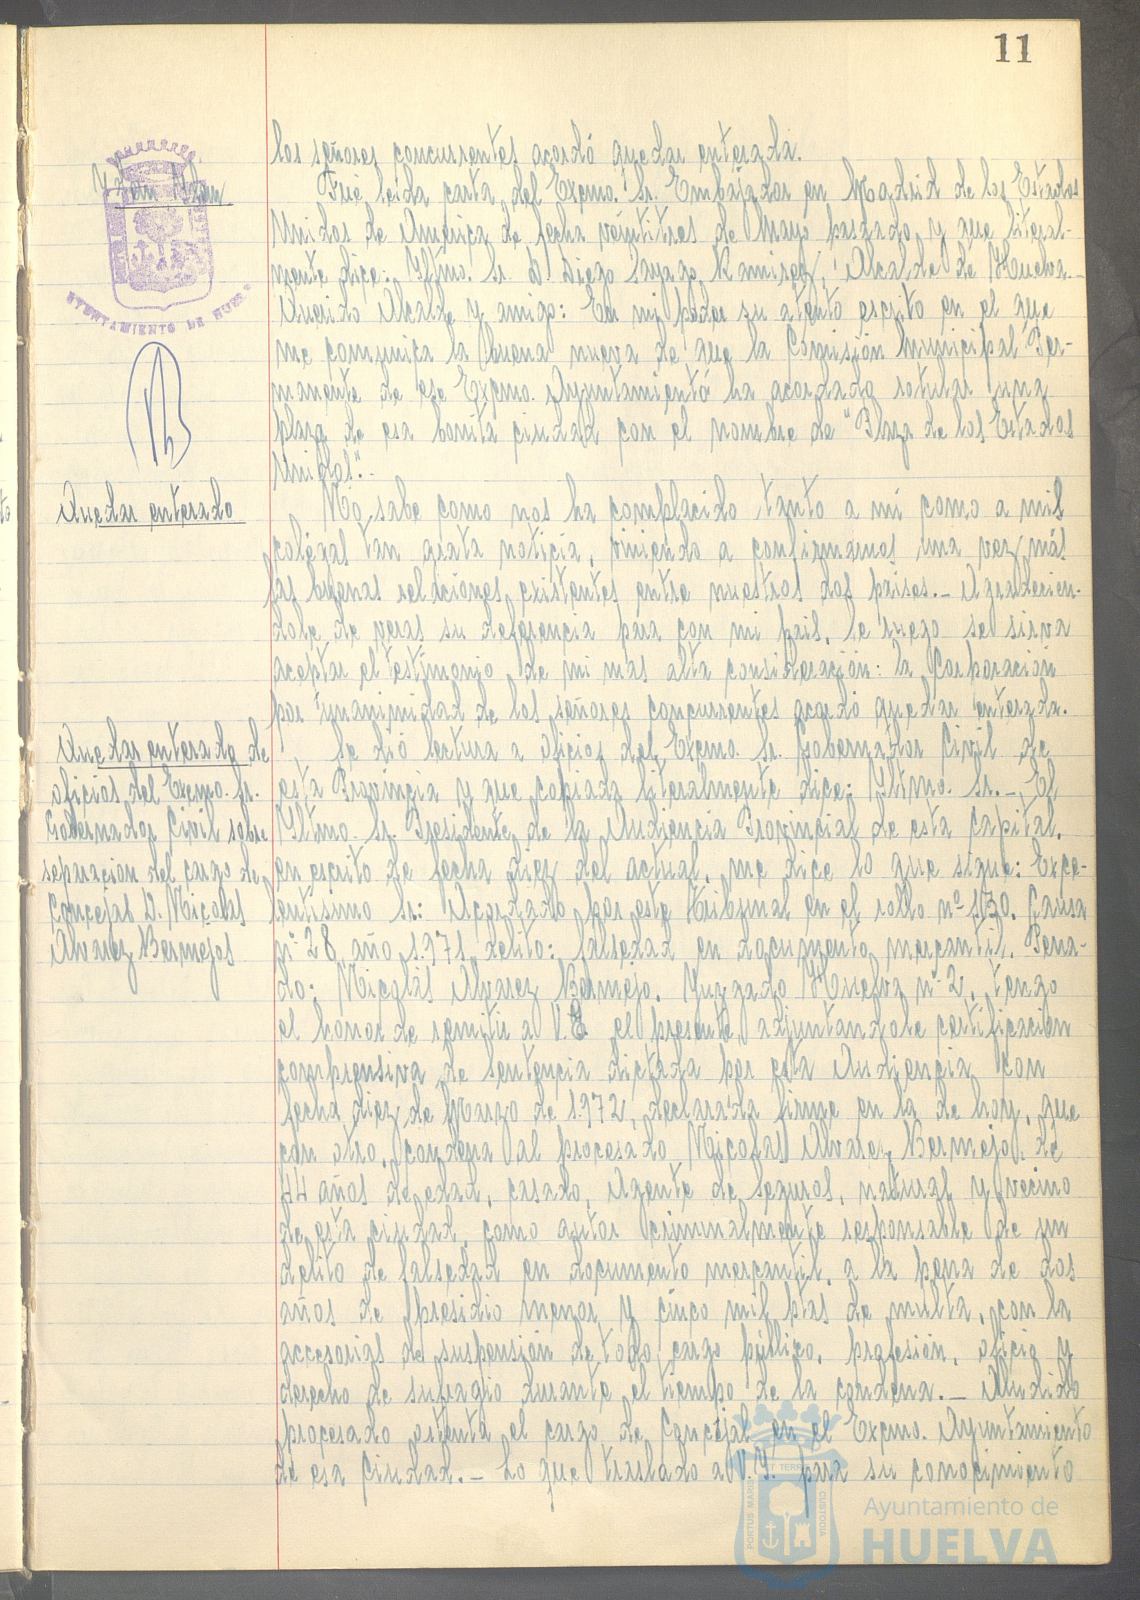 11
los señores concurrentes acordó quedar enterada.
Ytem Ytem
Fué leída carta del Excmo. Sr. Embajador en Madrid de los Estados
Unidos de América de fecha veintitres de Mayo pasado, y que literal-
mente dice: Yltmo. Sr. D. Diego Sayago Ramirez, Alcalde de Huelva.-
Querido Alcalde y amigo: En mi poder su atento escrito en el que
me comunica la buena nueva de que la Comisión Municipal Per-
manente de ese Excmo. Ayuntamiento ha acordado rotular una
plaza de esa bonita ciudad con el nombre de "Plaza de los Estados
Unidos".-
AYUNTAMIENTO DE HUELVA
Quedar enterado
No sabe como nos ha complacido tanto a mí como a mis
colegas tan grata noticia, viniendo a confirmarnos una vez más
las buenas relaciones existentes entre nuestros dos países.- Agradecien-
dole de veras su deferencia para con mi país, le ruego se sirva
aceptar el testimonio de mi mas alta consideración: la Corporación
por unanimidad de los señores concurrentes acordó quedar enterada.
Quedar enterado de
oficios del Excmo. Sr.
Gobernador Civil sobre
separación del cargo de
Concejal D. Nicolás
Alvarez Bermejos
Se dió lectura a oficios del Excmo. Sr. Gobernador Civil de
esta Provincia y que copiada literalmente dice: Yltmo. Sr.- El
Yltmo. Sr. Presidente de la Audiencia Provincial de esta Capital,
en escrito de fecha diez del actual, me dice lo que sigue: Exce-
lentísimo Sr: Acordado por este Tribunal en el rollo nº 130. Causa
nº 28 año 1.971, delito: falsedad en documento mercantil. Pena-
do: Nicolás Alvarez Bermejo. Juzgado Huelva nº 2, tengo
el honor de remitir a V.E. el presente, adjuntandole certificación
comprensiva de sentencia dictada por esta Audiencia con
fecha diez de Marzo de 1.972, declarada firme en la de hoy, que
con otro, condena al procesado Nicolás Alvarez Bermejo, de
44 años de edad, casado, Agente de Seguros, natural y vecino
de esta ciudad, como autor criminalmente responsable de un
delito de falsedad en documento mercantil, a la pena de dos
años de presidio menor y cinco mil ptas de multa, con la
accesorias de suspensión de todo cargo público, profesión, oficio y
derecho de sufragio durante el tiempo de la condena.- Aludido
procesado ostenta el cargo de Concejal en el Excmo. Ayuntamiento
de esa ciudad.- Lo que traslado a V.Y. para su conocimiento
PORTUS MARIS ET TERRAE CUSTODIA
Ayuntamiento de
HUELVA